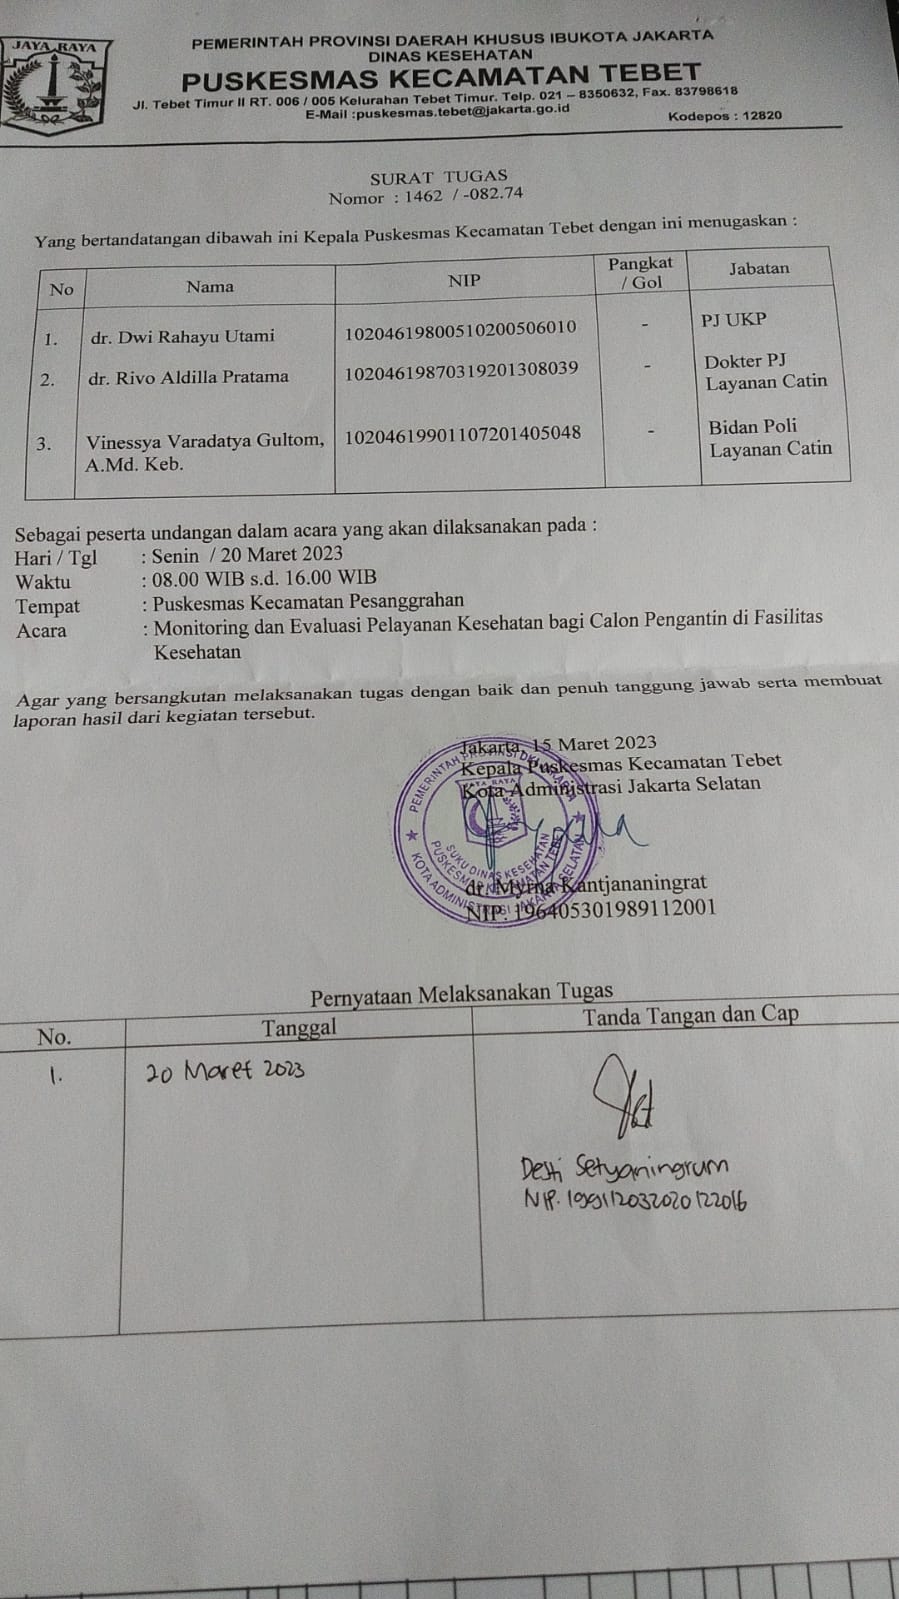 JAYA RAYA
PEMERINTAH PROVINSI DAERAH KHUSUS IBUKOTA JAKARTA
DINAS KESEHATAN
PUSKESMAS KECAMATAN TEBET
Jl. Tebet Timur II RT. 006 / 005 Kelurahan Tebet Timur. Telp. 021 – 8350632, Fax. 83798618
E-Mail :puskesmas.tebet@jakarta.go.id
Kodepos : 12820
SURAT TUGAS
Nomor : 1462 / -082.74
Yang bertandatangan dibawah ini Kepala Puskesmas Kecamatan Tebet dengan ini menugaskan :
No Nama NIP Pangkat / Gol Jabatan
1. dr. Dwi Rahayu Utami 10204619800510200506010 - PJ UKP
2. dr. Rivo Aldilla Pratama 10204619870319201308039 - Dokter PJ
Layanan Catin
3. Vinessya Varadatya Gultom, 10204619901107201405048 - Bidan Poli
A.Md. Keb. Layanan Catin
Sebagai peserta undangan dalam acara yang akan dilaksanakan pada :
Hari / Tgl : Senin / 20 Maret 2023
Waktu : 08.00 WIB s.d. 16.00 WIB
Tempat : Puskesmas Kecamatan Pesanggrahan
Acara : Monitoring dan Evaluasi Pelayanan Kesehatan bagi Calon Pengantin di Fasilitas
Kesehatan
Agar yang bersangkutan melaksanakan tugas dengan baik dan penuh tanggung jawab serta membuat
laporan hasil dari kegiatan tersebut.
Jakarta, 15 Maret 2023
Kepala Puskesmas Kecamatan Tebet
Kota Administrasi Jakarta Selatan
PEMERINTAH PROVINSI DKI JAKARTA
JAYA RAYA
SUKU DINAS KESEHATAN
PUSKESMAS KECAMATAN TEBET
KOTA ADMINISTRASI JAKARTA SELATAN
dr. Myrna Kantjananingrat
NIP. 196405301989112001
Pernyataan Melaksanakan Tugas
No. Tanggal Tanda Tangan dan Cap
1. 20 Maret 2023
Desti Setyaningrum
NIP. 199112032020122016